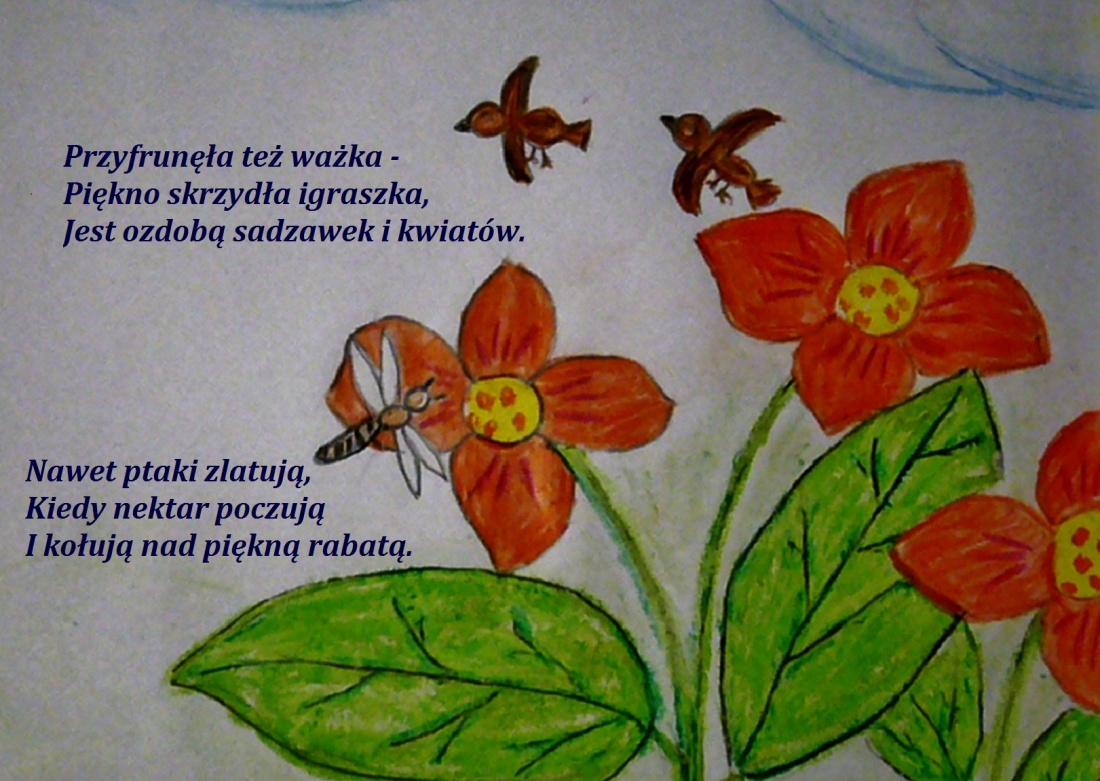 Przyfrunęła też ważka -
Piękno skrzydła igraszka,
Jest ozdobą sadzawek i kwiatów.
Nawet ptaki zlatują,
Kiedy nektar poczują
I kołują nad piękną rabatą.